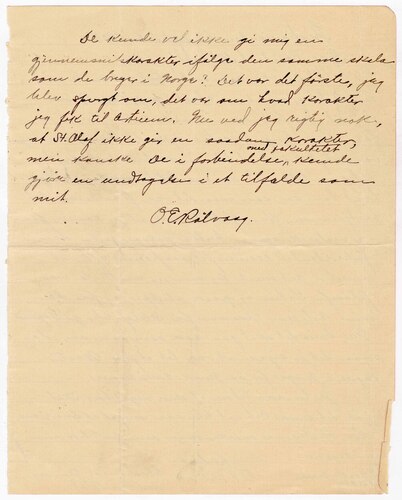 De kunde vel ikke gi mig en
gjennemsnitskarakter ifølge den samme skala
som de bruger i Norge? Det var det første, jeg
blev spurgt om, det var om hvad karakter
jeg fik til Artium. Nu ved jeg rigtig nok,
at St. Olaf ikke gir en saadan karakter,
men kanske De i forbindelse med fakultetet kunde
gjøre en undtagelse i et tilfælde som
mit.
O. E. Rølvaag.